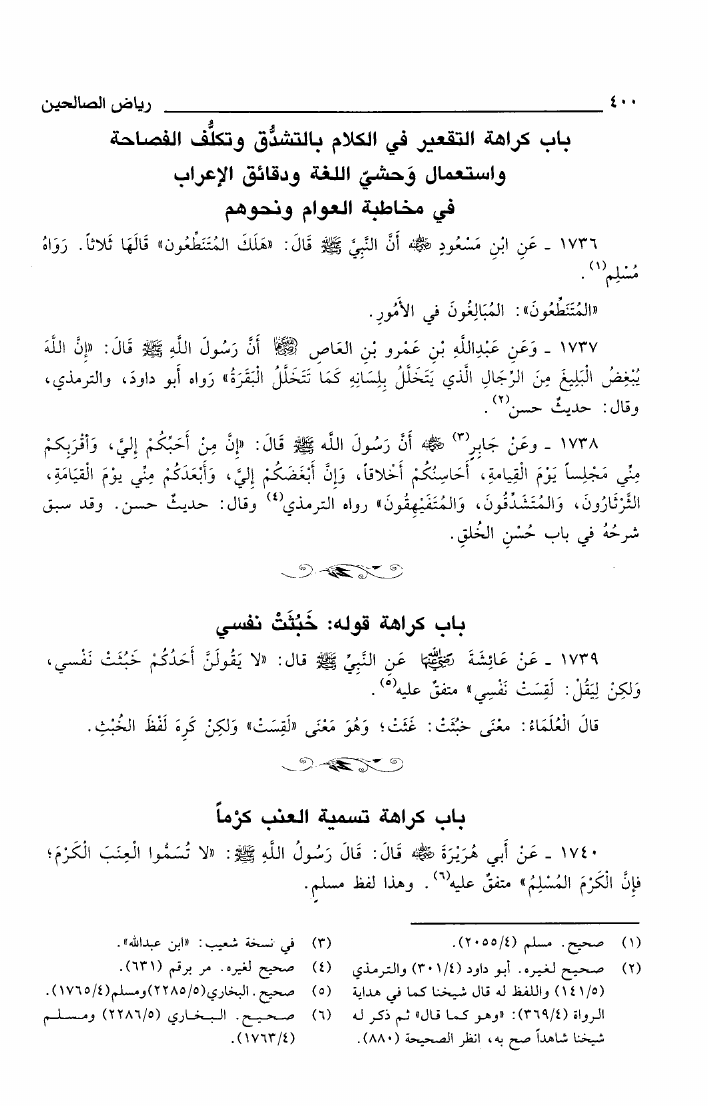 ٤٠٠ رياض الصالحين
باب كراهة التقعير في الكلام بالتشدُّق وتكلُّف الفصاحة
واستعمال وَحشيّ اللغة ودقائق الإعراب
في مخاطبة العوام ونحوهم
١٧٣٦ ـ عَنِ ابْنِ مَسْعُودٍ رضي الله عنه أَنَّ النَّبِيَّ ﷺ قَالَ: «هَلَكَ المُتَنَطِّعُون» قَالَهَا ثَلاثاً. رَوَاهُ
مُسْلِم(١).
«المُتَنَطِّعُونَ»: المُبَالِغُونَ في الأمُورِ.
١٧٣٧ ـ وَعَن عَبْدِاللَّهِ بْنِ عَمْرو بْنِ العَاصِ رضي الله عنهما أَنَّ رَسُولَ اللَّهِ ﷺ قَالَ: «إنَّ اللَّهَ
يُبْغِضُ الْبَلِيغَ مِنَ الرِّجَالِ الَّذي يَتَخَلَّلُ بِلِسَانِهِ كَمَا تَتَخَلَّلُ الْبَقَرَةُ» رَواه أبو داودَ، والترمذي،
وقال: حديثٌ حسن(٢).
١٧٣٨ ـ وعَنْ جَابِرٍ(٣) رضي الله عنه أَنَّ رَسُولَ اللَّه ﷺ قَالَ: «إنَّ مِنْ أَحَبِّكُمْ إلَيَّ، وَأَقْرَبِكمْ
مِنِّي مَجْلِساً يَوْمَ القِيامةِ، أَحَاسِنُكُمْ أَخْلاقاً، وَإنَّ أَبْغَضَكُمْ إلَيَّ، وَأَبْعَدَكُمْ مِنِّي يوْمَ الْقِيَامَةِ،
الثَّرْثَارُونَ، وَالمُتَشَدِّقُونَ، وَالمُتَفَيْهِقُونَ» رواه الترمذي(٤) وقال: حديثٌ حسن. وقد سبق
شرحُهُ في باب حُسْنِ الخُلقِ.
باب كراهة قوله: خَبُثَتْ نفسي
١٧٣٩ ـ عَنْ عَائِشَةَ رضي الله عنها عَنِ النَّبِيِّ ﷺ قال: «لا يَقُولَنَّ أَحَدُكُمْ خَبُثَتْ نَفْسي،
وَلكِنْ لِيَقُلْ: لَقِسَتْ نَفْسِي» متفقٌ عليه(٥).
قالَ الْعُلَمَاءُ: معْنَى خبُثَتْ: غَثَتْ؛ وَهُوَ مَعْنَى «لَقِسَتْ» وَلكِنْ كَرِهَ لَفْظَ الخُبْثِ.
باب كراهة تسمية العنب كرْماً
١٧٤٠ ـ عَنْ أبي هُرَيْرَةَ رضي الله عنه قَالَ: قَالَ رَسُولُ اللَّهِ ﷺ: «لا تُسَمُّوا الْعِنَبَ الْكَرْمَ؛
فإنَّ الْكَرْمَ المُسْلِمُ» متفقٌ عليه(٦). وهذا لفظ مسلمٍ.
(١) صحيح. مسلم (٢٠٥٥/٤).
(٢) صحيح لغيره. أبو داود (٣٠١/٤) والترمذي
(١٤١/٥) واللفظ له قال شيخنا كما في هداية
الرواة (٣٦٩/٤): «وهو كما قال» ثم ذكر له
شيخنا شاهداً صح به، انظر الصحيحة (٨٨٠).
(٣) في نسخة شعيب: «ابن عبدالله».
(٤) صحيح لغيره. مر برقم (٦٣١).
(٥) صحيح. البخاري(٢٢٨٥/٥)ومسلم(١٧٦٥/٤).
(٦) صحيح. البخاري (٢٢٨٦/٥) ومسلم
(١٧٦٣/٤).